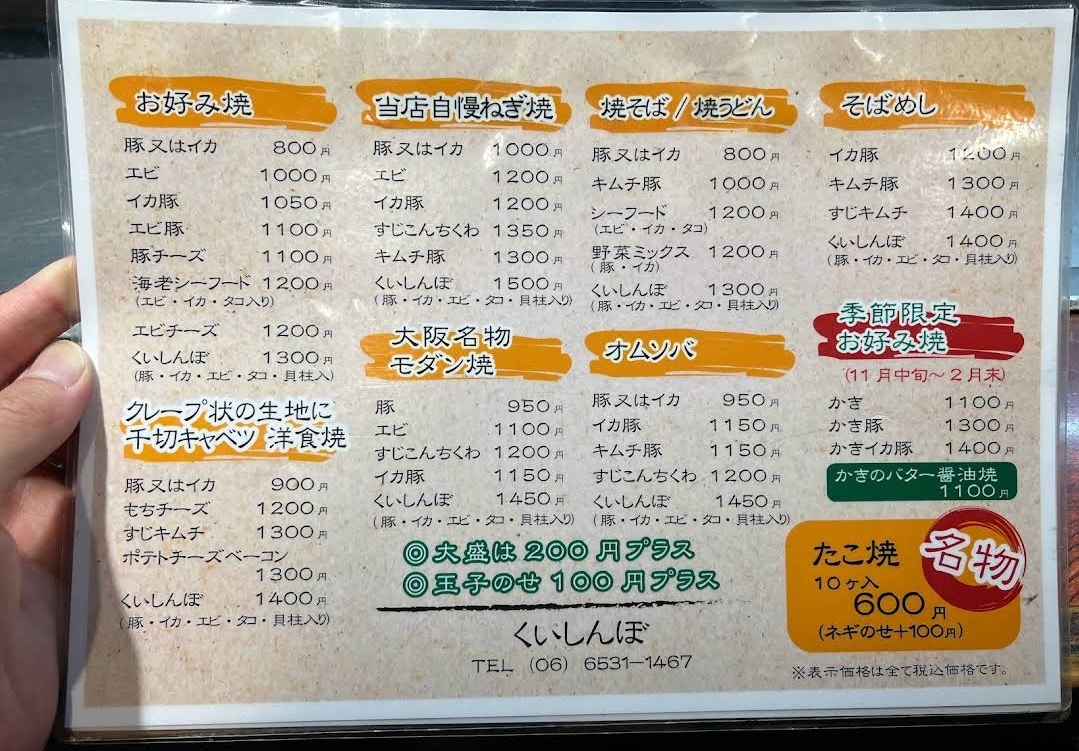 お好み焼
豚又はイカ 800円
エビ 1000円
イカ豚 1050円
エビ豚 1100円
豚チーズ 1100円
海老シーフード 1200円
(エビ・イカ・タコ入り)
エビチーズ 1200円
くいしんぼ 1300円
(豚・イカ・エビ・タコ・貝柱入)
クレープ状の生地に
千切キャベツ 洋食焼
豚又はイカ 900円
もちチーズ 1200円
すじキムチ 1300円
ポテトチーズベーコン
1300円
くいしんぼ 1400円
(豚・イカ・エビ・タコ・貝柱入り)
当店自慢ねぎ焼
豚又はイカ 1000円
エビ 1200円
イカ豚 1200円
すじこんちくわ 1350円
キムチ豚 1300円
くいしんぼ 1500円
(豚・イカ・エビ・タコ・貝柱入り)
大阪名物
モダン焼
豚 950円
エビ 1100円
すじこんちくわ 1200円
イカ豚 1150円
くいしんぼ 1450円
(豚・イカ・エビ・タコ・貝柱入り)
焼そば/焼うどん
豚又はイカ 800円
キムチ豚 1000円
シーフード 1200円
(エビ・イカ・タコ)
野菜ミックス 1200円
(豚・イカ)
くいしんぼ 1300円
(豚・イカ・エビ・タコ・貝柱入り)
オムソバ
豚又はイカ 950円
イカ豚 1150円
キムチ豚 1150円
すじこんちくわ 1200円
くいしんぼ 1450円
(豚・イカ・エビ・タコ・貝柱入り)
◎大盛は200円プラス
◎玉子のせ100円プラス
くいしんぼ
TEL (06) 6531-1467
そばめし
イカ豚 1200円
キムチ豚 1300円
すじキムチ 1400円
くいしんぼ 1400円
(豚・イカ・エビ・タコ・貝柱入り)
季節限定
お好み焼
(11月中旬～2月末)
かき 1100円
かき豚 1300円
かきイカ豚 1400円
かきのバター醤油焼
1100円
たこ焼 名物
10ヶ入
600円
(ネギのせ+100円)
※表示価格は全て税込価格です。